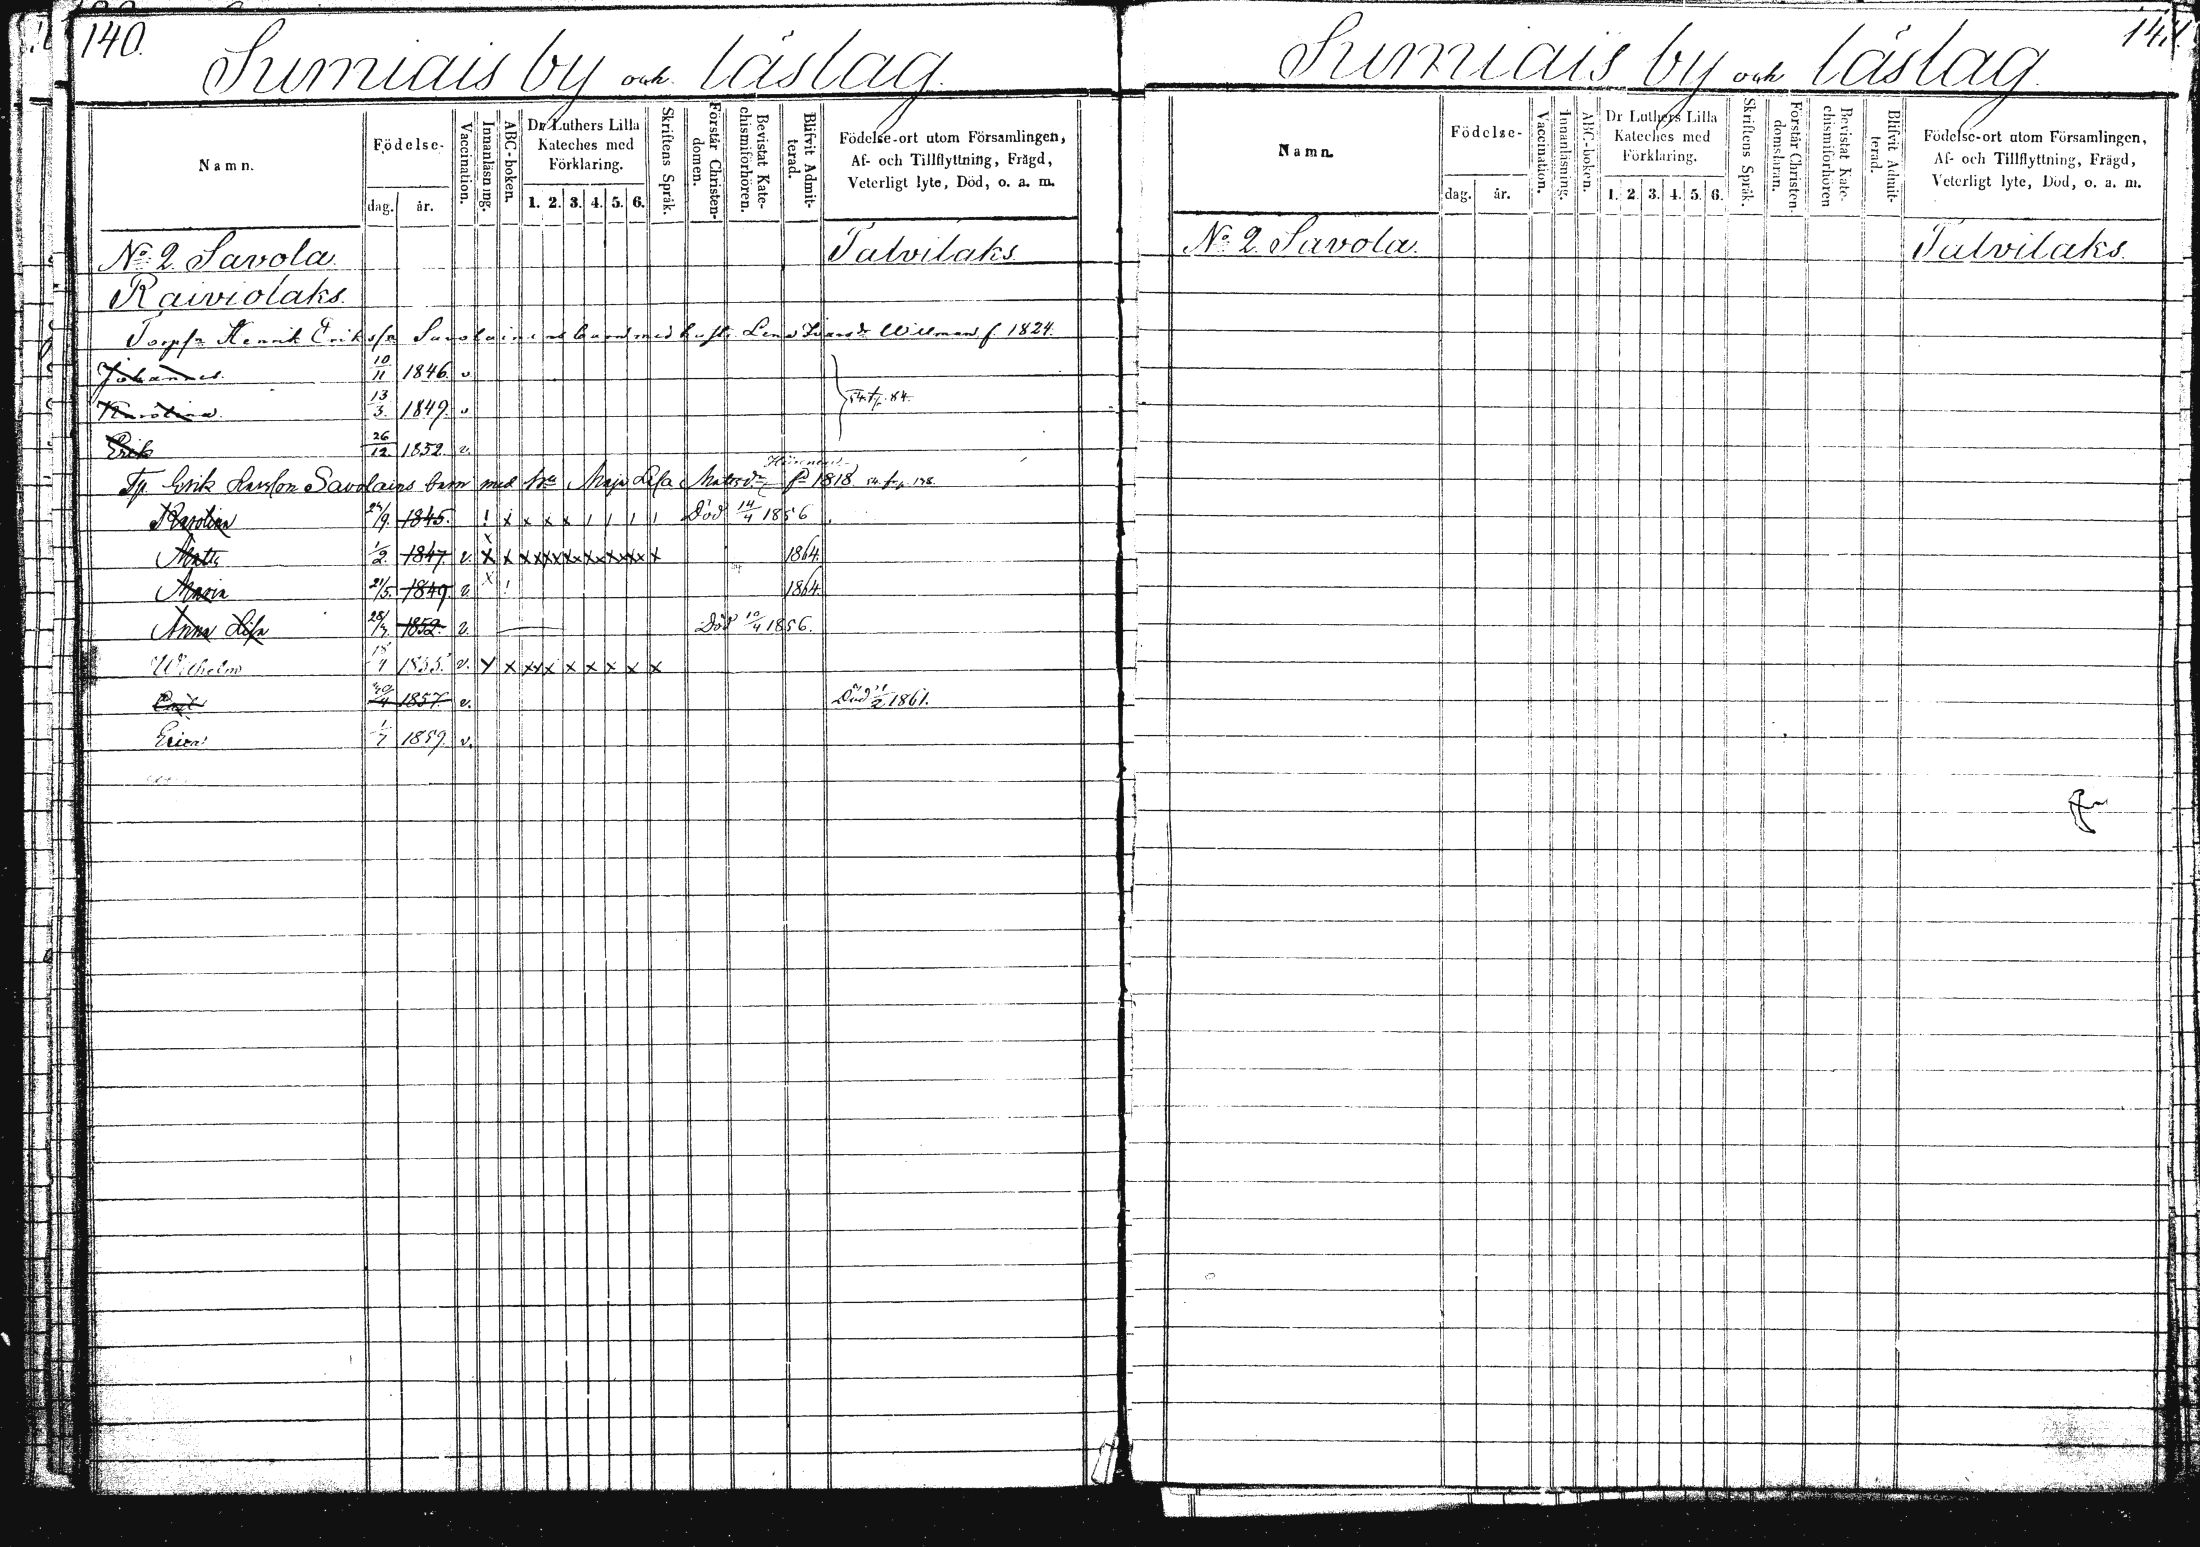 140.
Sumiais by och läslag.
Namn.
Födelse-
dag. år.
Vaccination.
Innanläsning.
ABC-boken.
Dr Luthers Lilla Kateches med Förklaring.
1. 2. 3. 4. 5. 6.
Skriftens Språk.
Förstår Christendomen.
Bevistat Katechismiförhören.
Blifvit Admitterad.
Födelse-ort utom Församlingen, Af- och Tillflyttning, Frägd, Veterligt lyte, Död, o. a. m.
No 2. Savola. Talvilaks.
Raiviolaks.
Torpr Henrik Eriksson Savolainens barn med hustr. Lena Willman f. 1824.
Johannes. 10/11 1846. v
Karolina. 13/3. 1849. v
Erik 26/12 1852 v.
Tp. Erik Savolains barn med Maja Lisa Matsdr f. 1818.
Karolina 1845. ! x x x x 1 1 1 1 1 Död 14/4 1856.
Matts 1/2. 1847. v. x x xxxxxxxxxxxx x 1864.
Maria 21/5. 1849. v. x ! 1864.
Anna Lisa 1852. v. Död 10/4 1856.
Wilhelm 1855. v. x x xxx x x x x x
1857. v. Död 1861.
1/7 1859. v.
141.
Sumiais by och läslag.
Namn.
Födelse-
dag. år.
Vaccination.
Innanläsning.
ABC-boken.
Dr Luthers Lilla Kateches med Förklaring.
1. 2. 3. 4. 5. 6.
Skriftens Språk.
Förstår Christendomsläran.
Bevistat Katechismiförhören
Blifvit Admitterad.
Födelse-ort utom Församlingen, Af- och Tillflyttning, Frägd, Veterligt lyte, Död, o. a. m.
No 2. Savola. Talvilaks.